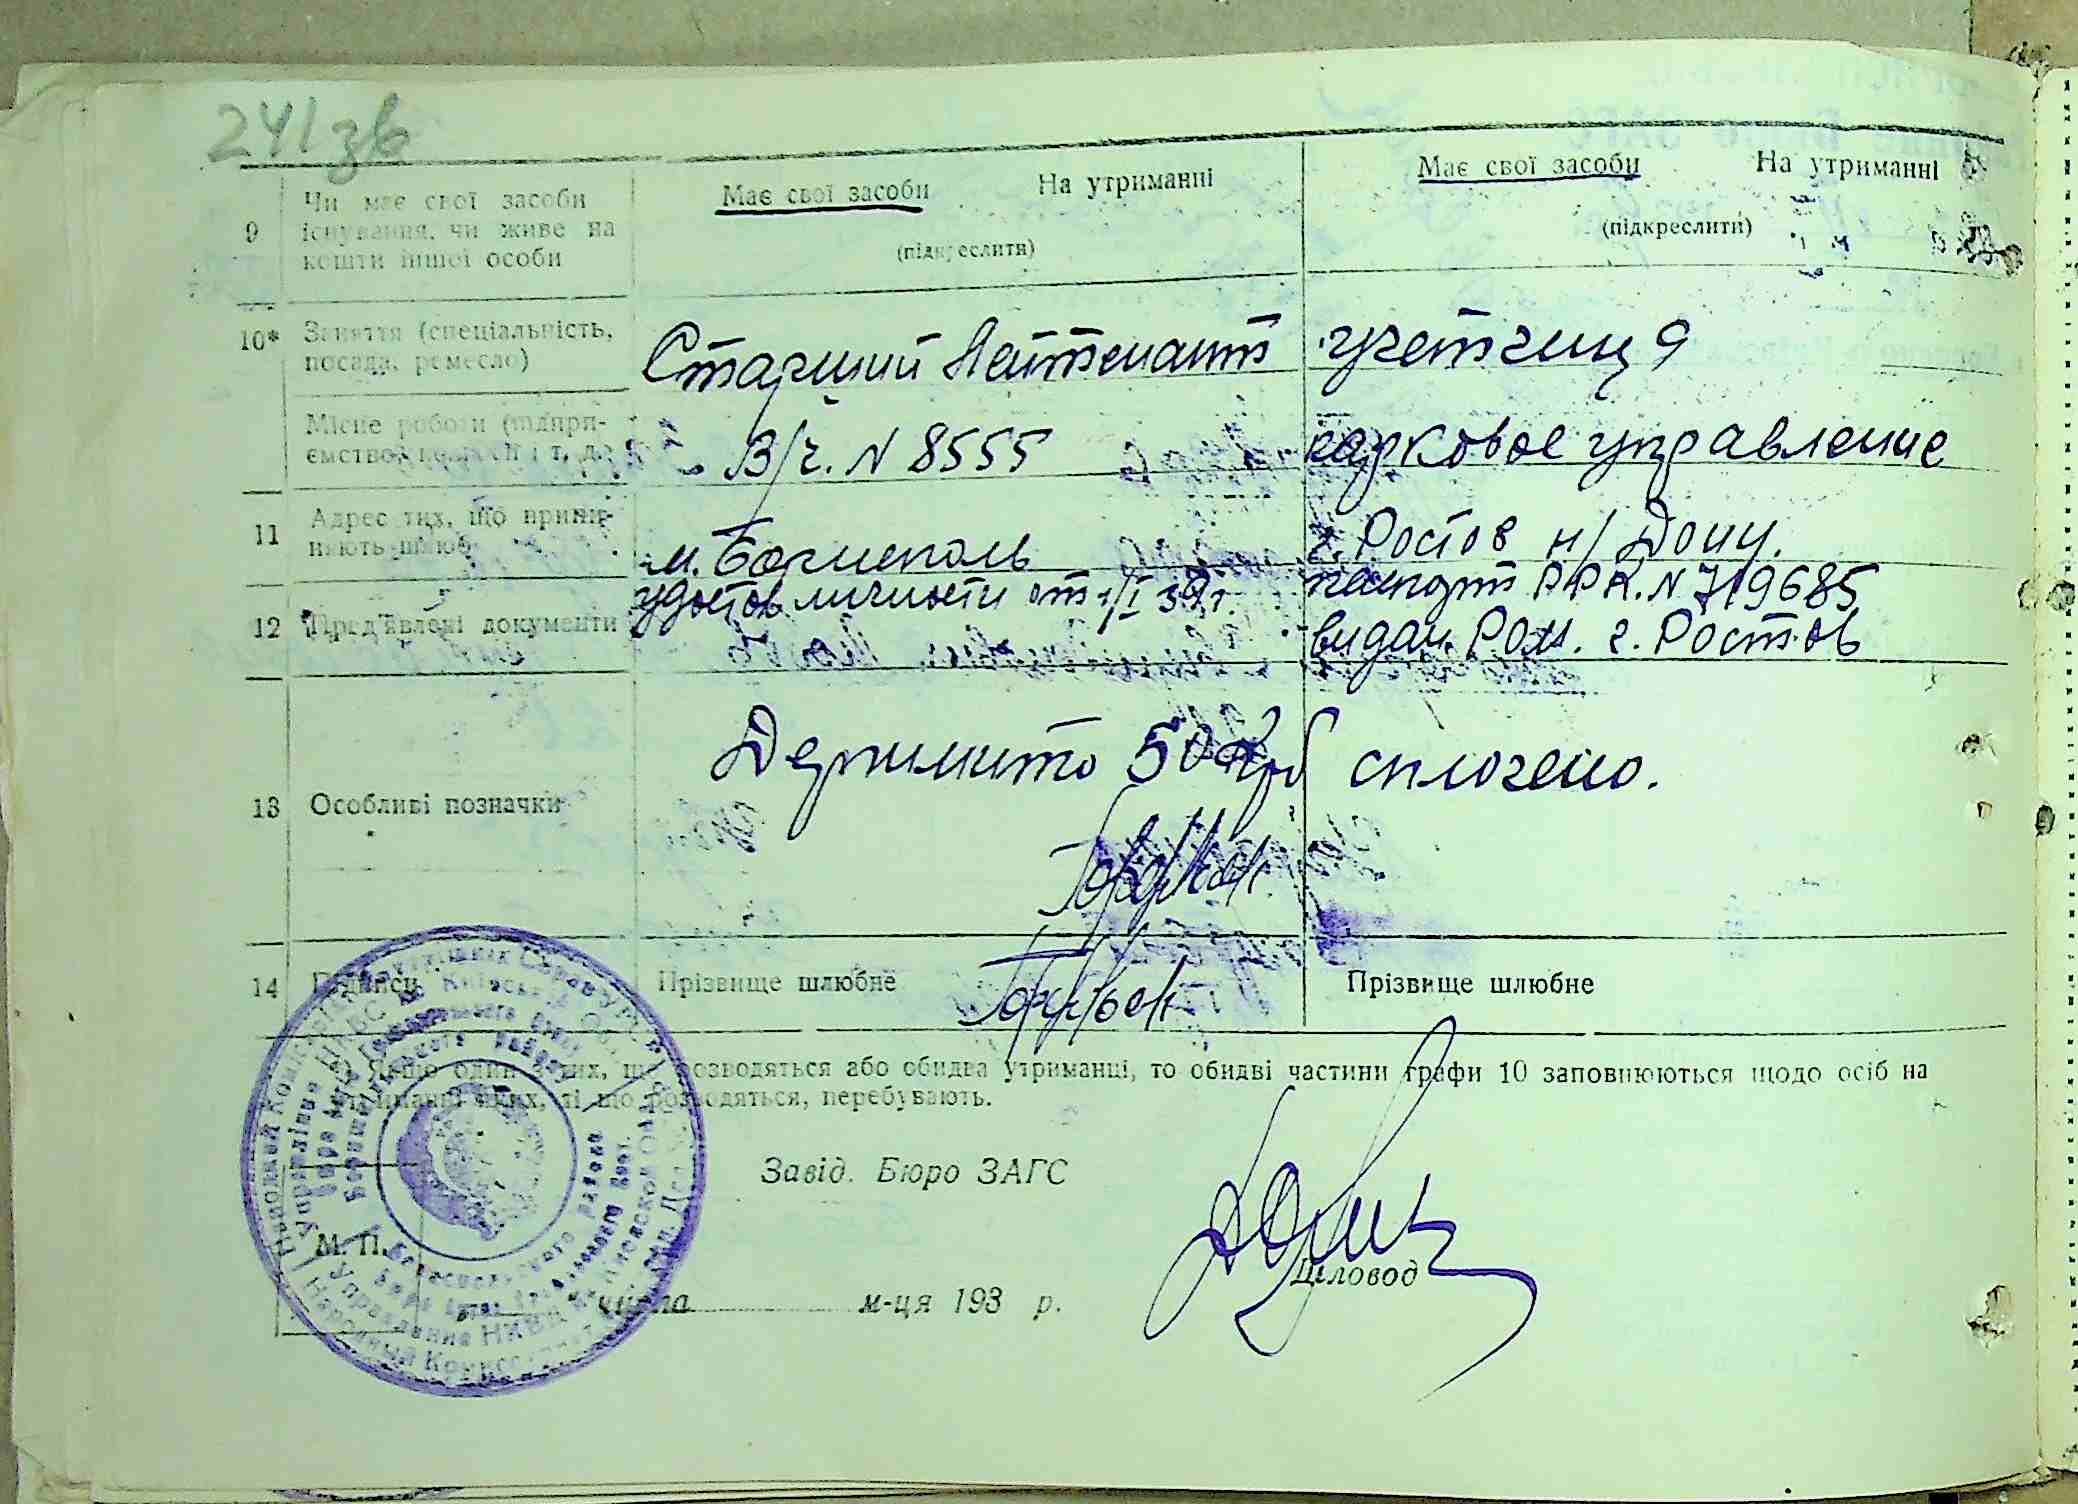 241зв
9 Чи має свої засоби існування, чи живе на кошти іншої особи
Має свої засоби На утриманні
(підкреслити)
Має свої засоби На утриманні
(підкреслити)
10* Заняття (спеціальність, посада, ремесло)
Старший Лейтенант
учетчица
Місце роботи (підпри-
ємство,
В/ч. N 8555
парковое управление
11 Адрес тих, що прини-
мають шлюб
м. Бориспіль
г. Ростов н/Дону.
12 Пред'явлені документи
удостов личности от 1/I 39г.
паспорт РРК. N 719685
видан. РОМ. г. Ростов
13 Особливі позначки
Держмито 50 крб сплочено.
14 Підписи
Прізвище шлюбне
Прізвище шлюбне
*) Якщо один з тих, що розводяться або обидва утриманці, то обидві частини графи 10 заповнюються щодо осіб на
утриманні яких, ті що розводяться, перебувають.
Завід. Бюро ЗАГС
М. П.
Діловод
числа м-ця 193 р.